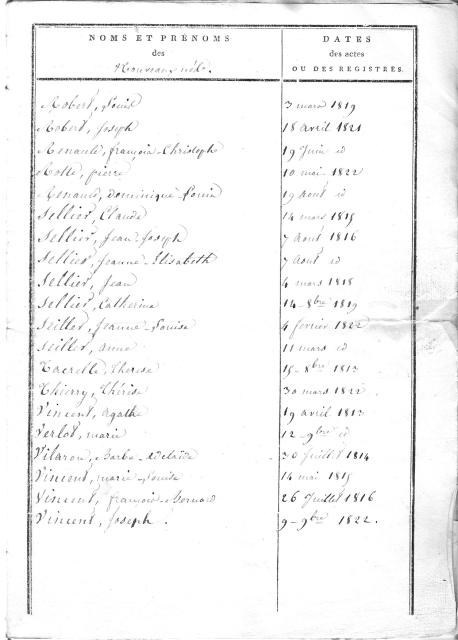 NOMS ET PRÉNOMS
des
Nouveaux nés.
DATES
des actes
OU DES REGISTRES.
Robert, Louis 3 mars 1819
Robert, Joseph 18 avril 1821
Renault, françois-Christophe 19 Juin id
Rolle, pierre 10 mai 1822
Renauld, dominique-Louis 19 Aout id
Sellier, Claude 14 mars 1815
Sellier, Jean-Joseph 7 Aout 1816
Sellier, Jeanne-Elisabeth 7 Aout id
Sellier, Jean 4 mars 1818
Sellier, Catherine 14-8bre 1819
Seiller, Jeanne-Louise 4 février 1822
Seiller, anne 11 mars id
Therese 15-8bre 1813
Thierry, Thérèse 30 mars 1822
Vincent, agathe 19 avril 1813
Verlot, marie 12-9bre id
Vilaron, Barbe-adelaide 30 Juillet 1814
Vincent, marie-Louise 14 mai 1815
Vincent, françois-Bernard 26 Juillet 1816
Vincent, Joseph. 9-9bre 1822.